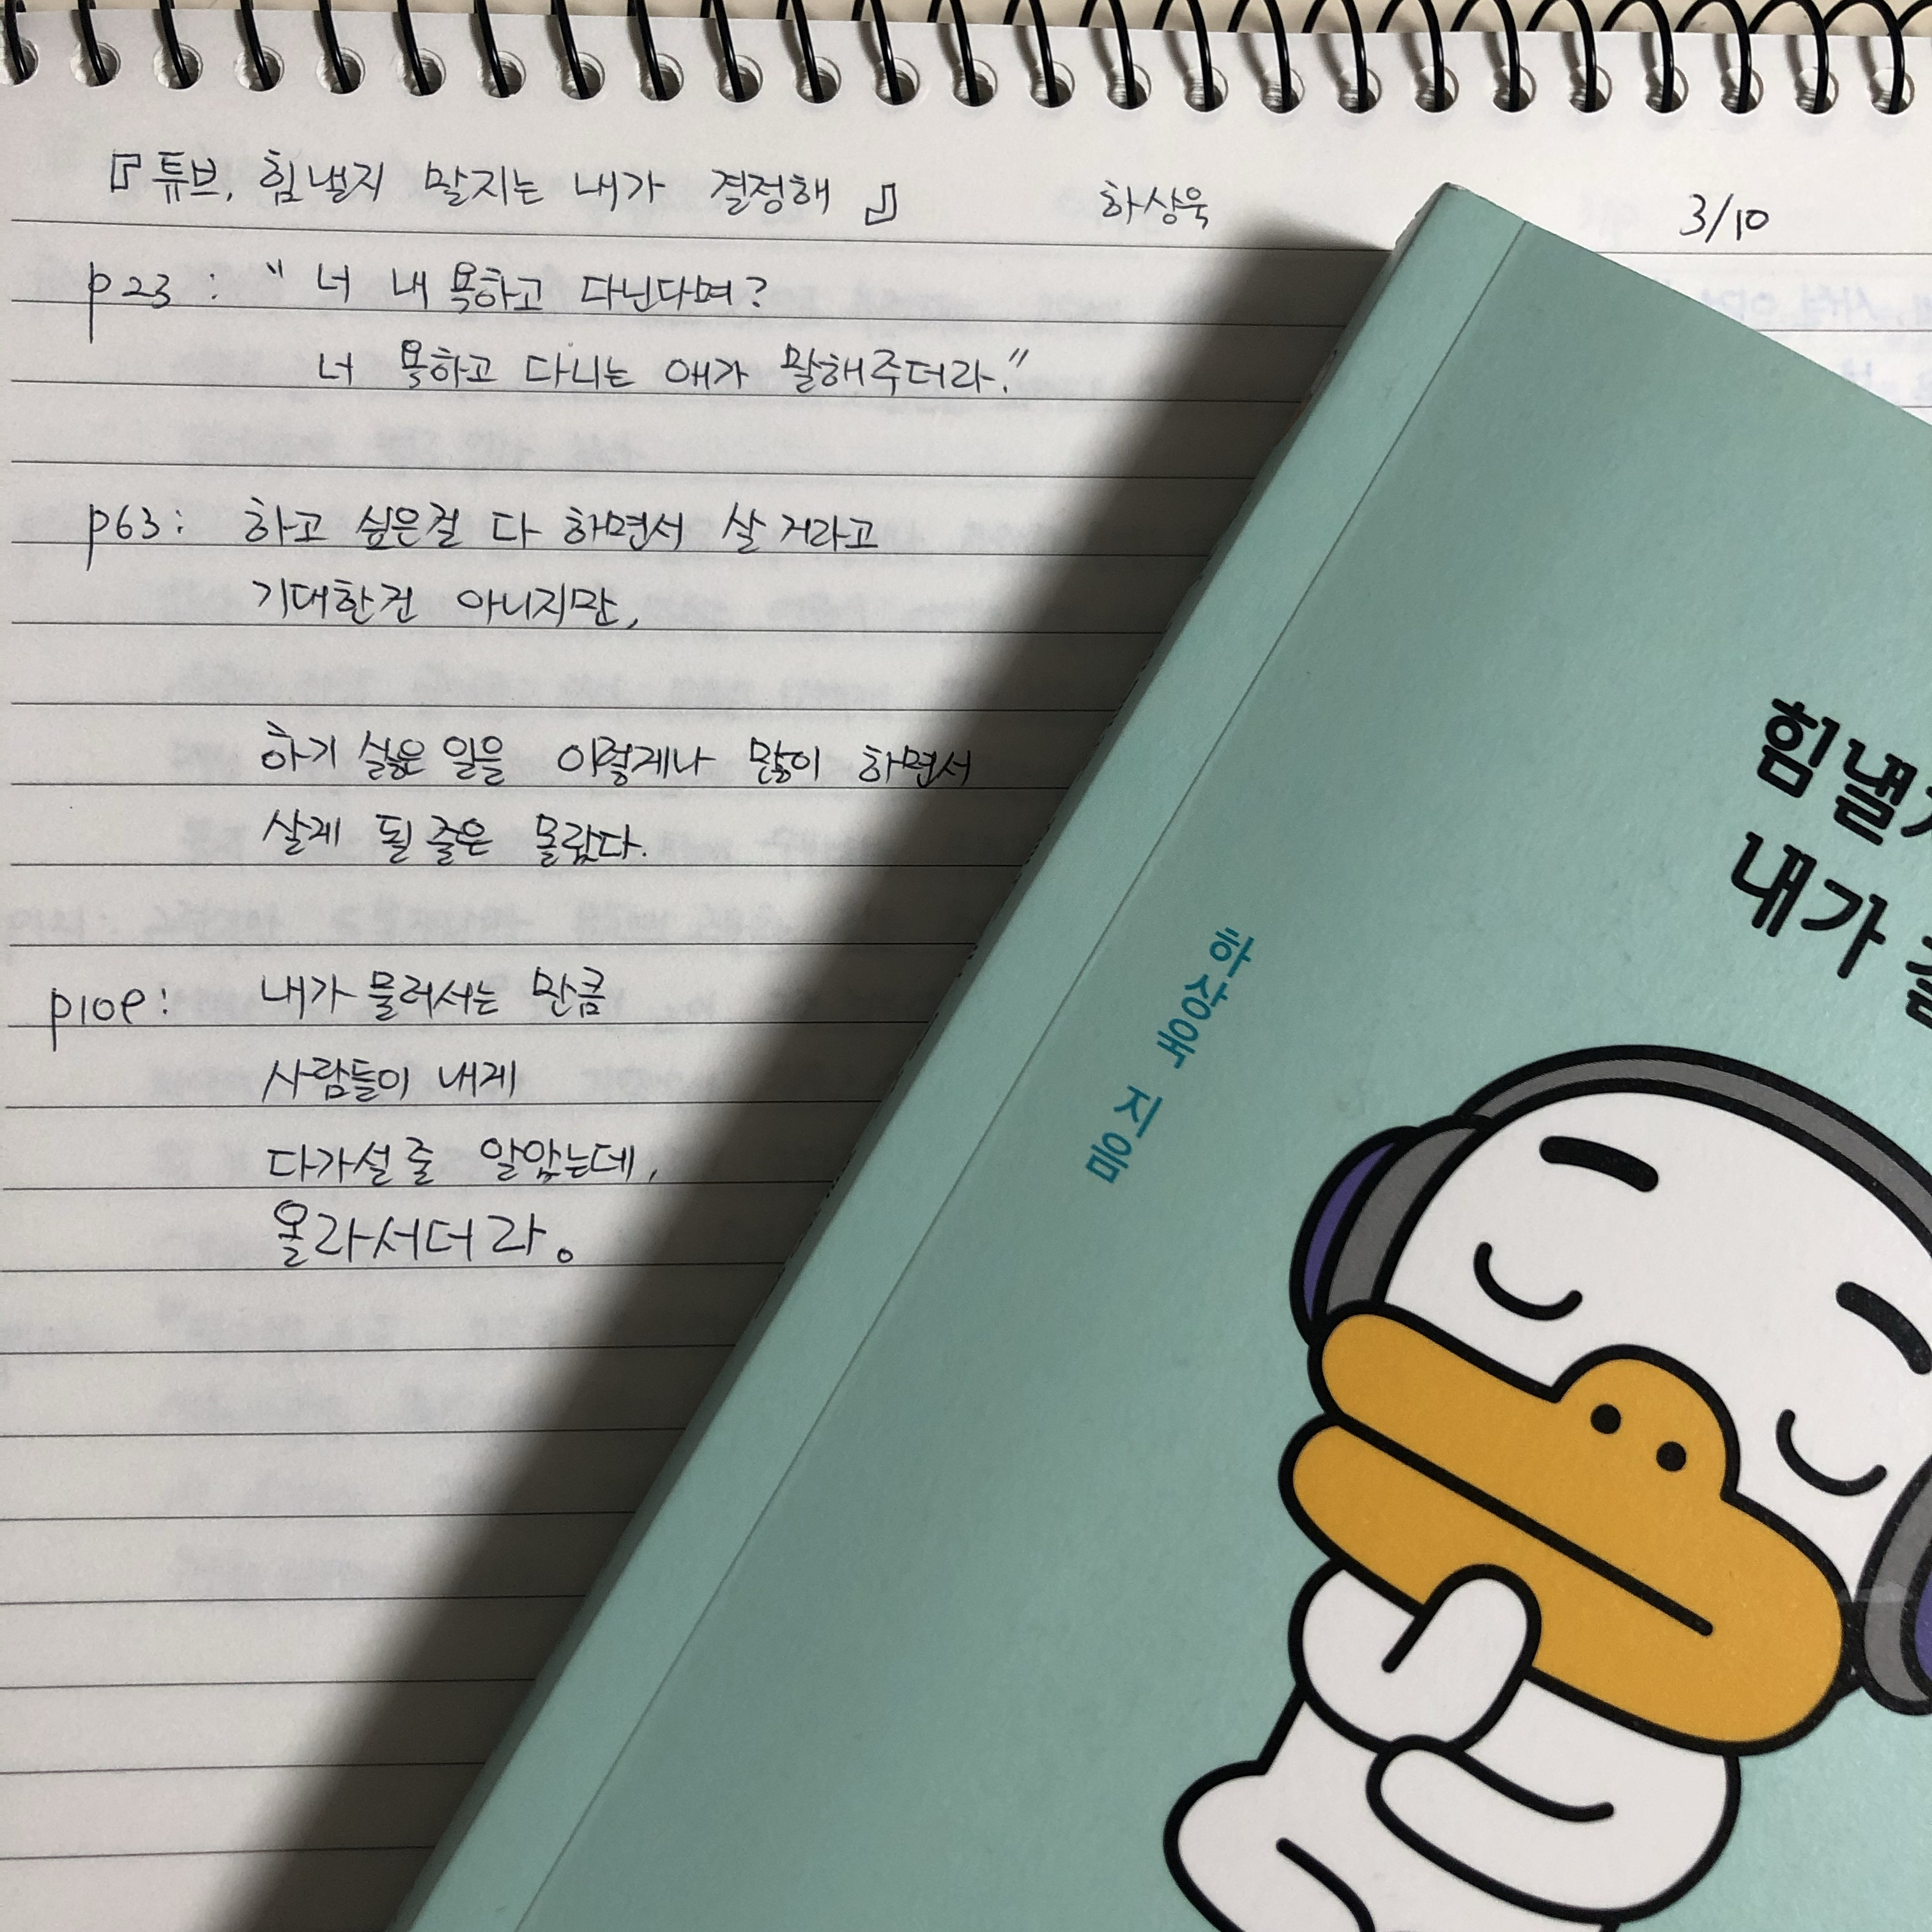 『튜브, 힘낼지 말지는 내가 결정해』 하상욱 3/10
p23 : " 너 내 욕하고 다닌다며?
너 욕하고 다니는 애가 말해주더라."
p63 : 하고 싶은걸 다 하면서 살 거라고
기대한건 아니지만,
하기 싫은 일을 이렇게나 많이 하면서
살게 될 줄은 몰랐다.
p109 : 내가 물러서는 만큼
사람들이 내게
다가설 줄 알았는데,
올라서더라.
힘낼지
내가
하상욱 지음